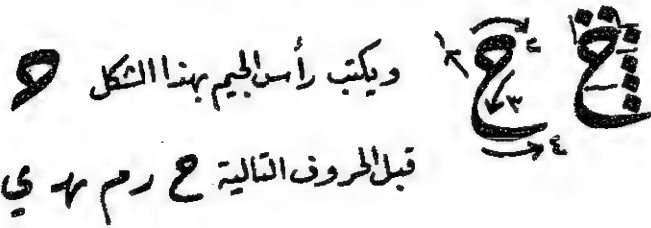 ويكتب رأس الجيم بهذا الشكل حـ
قبل الحروف التالية ح ر م ـهـ ي